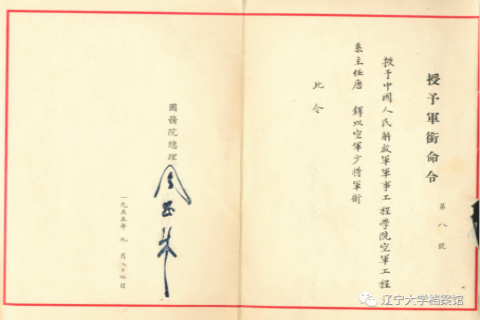 授予軍銜命令
第八號
授予中國人民解放軍軍事工程學院空軍工程
系主任唐 鐸以空軍少將軍銜
此令
國務院總理
一九五五年九月 日
辽宁大学档案馆